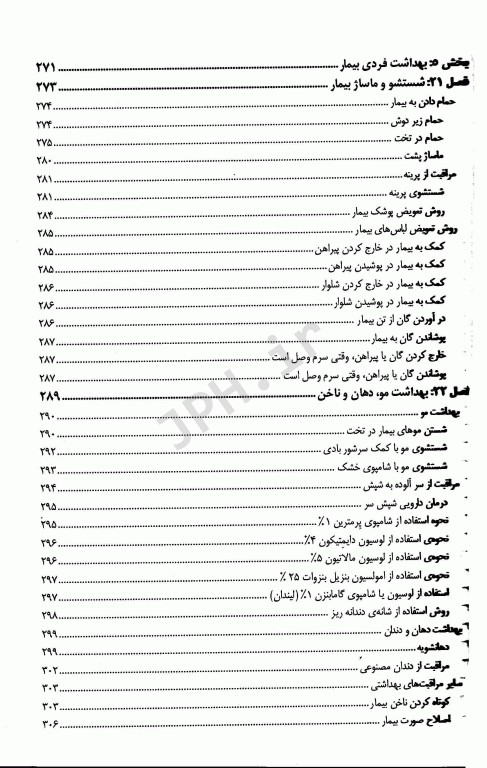 بخش ۵: بهداشت فردی بیمار ... ۲۷۱
فصل ۲۱: شستشو و ماساژ بیمار ... ۲۷۳
حمام دادن به بیمار ... ۲۷۴
حمام زیر دوش ... ۲۷۴
حمام در تخت ... ۲۷۵
ماساژ پشت ... ۲۸۰
مراقبت از پرینه ... ۲۸۱
شستشوی پرینه ... ۲۸۱
روش تعویض پوشک بیمار ... ۲۸۴
روش تعویض لباس‌های بیمار ... ۲۸۵
کمک به بیمار در خارج کردن پیراهن ... ۲۸۵
کمک به بیمار در پوشیدن پیراهن ... ۲۸۵
کمک به بیمار در خارج کردن شلوار ... ۲۸۶
کمک به بیمار در پوشیدن شلوار ... ۲۸۶
در آوردن گان از تن بیمار ... ۲۸۶
پوشاندن گان به بیمار ... ۲۸۷
خارج کردن گان یا پیراهن، وقتی سرم وصل است ... ۲۸۷
پوشاندن گان یا پیراهن، وقتی سرم وصل است ... ۲۸۷
فصل ۲۲: بهداشت مو، دهان و ناخن ... ۲۸۹
بهداشت مو ... ۲۹۰
شستن موهای بیمار در تخت ... ۲۹۰
شستشوی مو با کمک سرشور بادی ... ۲۹۲
شستشوی مو با شامپوی خشک ... ۲۹۳
مراقبت از سر آلوده به شپش ... ۲۹۴
درمان دارویی شپش سر ... ۲۹۵
نحوه استفاده از شامپوی پرمترین ۱٪ ... ۲۹۵
نحوه‌ی استفاده از لوسیون دایمتیکون ۴٪ ... ۲۹۶
نحوه‌ی استفاده از لوسیون مالاتیون ۵٪ ... ۲۹۶
نحوه‌ی استفاده از امولسیون بنزیل بنزوات ۲۵ ٪ ... ۲۹۷
استفاده از لوسیون یا شامپوی گامابنزن ۱٪ (لیندان) ... ۲۹۷
روش استفاده از شانه‌ی دندانه ریز ... ۲۹۸
بهداشت دهان و دندان ... ۲۹۹
دهانشویه ... ۲۹۹
مراقبت از دندان مصنوعی ... ۳۰۲
سایر مراقبت‌های بهداشتی ... ۳۰۳
کوتاه کردن ناخن بیمار ... ۳۰۳
اصلاح صورت بیمار ... ۳۰۶
JPH.ir